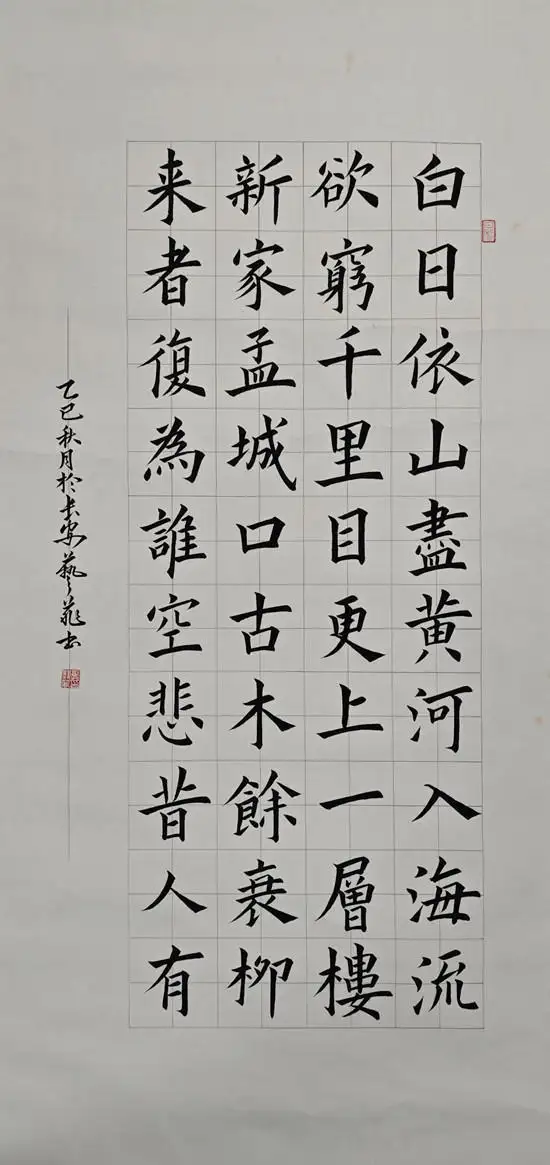 白日依山盡黄河入海流
欲窮千里目更上一層樓
新家孟城口古木餘衰柳
来者復為誰空悲昔人有
乙巳秋月於长安藝苑书